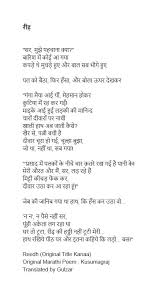 रीढ़
"सर, मुझे पहचाना क्या?"
बारिश में कोई आ गया
कपड़े थे मुचड़े हुए और बाल सब भीगे हुए
पल को बैठा, फिर हँसा, और बोला ऊपर देखकर
"गंगा मैया आई थीं, मेहमान होकर
कुटिया में रह कर गईं!
माइके आई हुई लड़की की मानिन्द
चारों दीवारों पर नाची
खाली हाथ अब जाती कैसे?
खैर से, पत्नी बची है
दीवार चूरा हो गई, चूल्हा बुझा,
जो था, नहीं था, सब गया!
"प्रसाद में पलकों के नीचे चार क़तरे रख गई है पानी के!
मेरी औरत और मैं, सर, लड़ रहे हैं
मिट्टी कीचड़ फेंक कर,
दीवार उठा कर आ रहा हूं!"
जेब की जानिब गया था हाथ, कि हँस कर उठा वो...
'न न', न पैसे नहीं सर,
यूंही अकेला लग रहा था
घर तो टूटा, रीढ़ की हड्डी नहीं टूटी मेरी...
हाथ रखिये पीठ पर और इतना कहिये कि लड़ो... बस!"
Reedh (Original Title Kanaa)
Original Marathi Poem : Kusumagraj
Translated by Gulzar